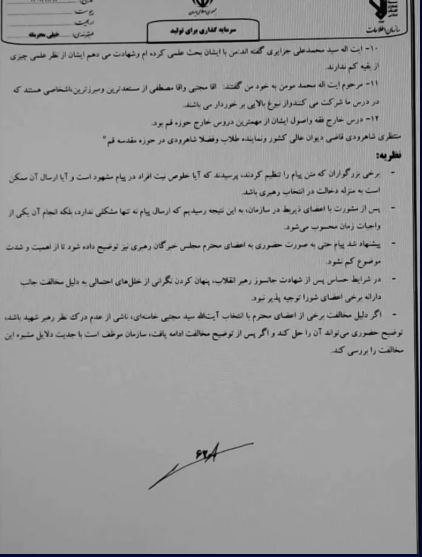 جمهوری اسلامی ایران
سازمان اطلاعات
سرمایه گذاری برای تولید
پیوست:
طبقه‌بندی: خیلی محرمانه
۱۰- ایت اله سید محمدعلی جزایری گفته اند:من با ایشان بحث علمی کرده ام وشهادت می دهم ایشان از نظر علمی چیزی
از بقیه کم ندارند.
۱۱- مرحوم ایت اله محمد مومن به خود من گفتند: اقا مجتبی واقا مصطفی از مستعدترین ومبرزترین‌اشخاصی هستند که
در درس ما شرکت می کنندواز نبوغ بالایی بر خوردار می باشند.
۱۲- درس خارج فقه واصول ایشان از مهمترین دروس خارج حوزه قم بود.
منتظری شاهرودی قاضی دیوان عالی کشور ونماینده طلاب وفضلا شاهرودی در حوزه مقدسه قم"
نظریه:
- برخی بزرگواران که متن پیام را تنظیم کردند، پرسیدند که آیا خلوص نیت افراد در پیام مشهود است و آیا ارسال آن ممکن
است به منزله دخالت در انتخاب رهبری باشد.
- پس از مشورت با اعضای ذیربط در سازمان، به این نتیجه رسیدیم که ارسال پیام نه تنها مشکلی ندارد، بلکه انجام آن یکی از
واجبات زمان محسوب می‌شود.
- پیشنهاد شد پیام حتی به صورت حضوری به اعضای محترم مجلس خبرگان رهبری نیز توضیح داده شود تا از اهمیت و شدت
موضوع کم نشود.
- در شرایط حساس پس از شهادت جانسوز رهبر انقلاب، پنهان کردن نگرانی از خلل‌های احتمالی به دلیل مخالفت جانب
دارانه برخی اعضای شورا توجیه پذیر نبود.
- اگر دلیل مخالفت برخی از اعضای محترم با انتخاب آیت‌الله سید مجتبی خامنه‌ای، ناشی از عدم درک نظر رهبر شهید باشد،
توضیح حضوری می‌تواند آن را حل کند و اگر پس از توضیح مخالفت ادامه یافت، سازمان موظف است با جدیت دلایل مشبوه این
مخالفت را بررسی کند.